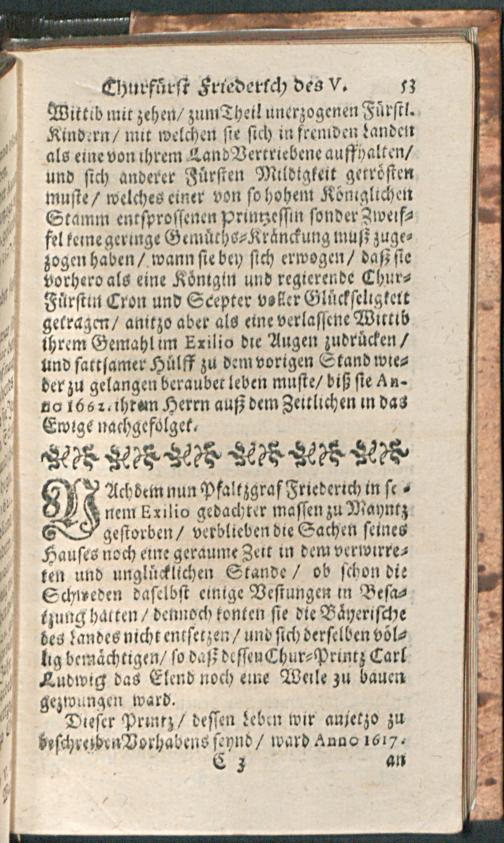 Churfürst Friederich des V. 53
Wittib mit zehen/ zum Theil unerzogenen Fürstl.
Kindern/ mit welchen sie sich in fremden Landen
als eine von ihrem Land Vertriebene auffhalten/
und sich anderer Fürsten Mildigkeit getrösten
muste/ welches einer von so hohem Königlichen
Stamm entsprossenen Printzessin sonder Zweif-
fel keine geringe Gemüths-Kränckung muß zuge-
zogen haben/ wann sie bey sich erwogen/ daß sie
vorhero als eine Königin und regierende Chur-
Fürstin Cron und Scepter voller Glückseligkeit
getragen/ anitzo aber als eine verlassene Wittib
ihrem Gemahl im Exilio die Augen zudrücken/
und sattsamer Hülff zu dem vorigen Stand wie-
der zu gelangen beraubet leben muste/ biß sie An-
no 1662. ihrem Herrn auß dem Zeitlichen in das
Ewige nachgefolget.
NAchdem nun Pfaltzgraf Friederich in se-
nem Exilio gedachter massen zu Mayntz
gestorben/ verblieben die Sachen seines
Hauses noch eine geraume Zeit in dem verwirre-
ten und unglücklichen Stande/ ob schon die
Schweden daselbst einige Vestungen in Besa-
tzung hatten/ dennoch konten sie die Bäyerische
des Landes nicht entsetzen/ und sich derselben völ-
lig bemächtigen/ so daß dessen Chur-Printz Carl
Ludwig das Elend noch eine Weile zu bauen
gezwungen ward.
Dieser Printz/ dessen Leben wir anjetzo zu
beschreiben Vorhabens seynd/ ward Anno 1617.
C 3 an